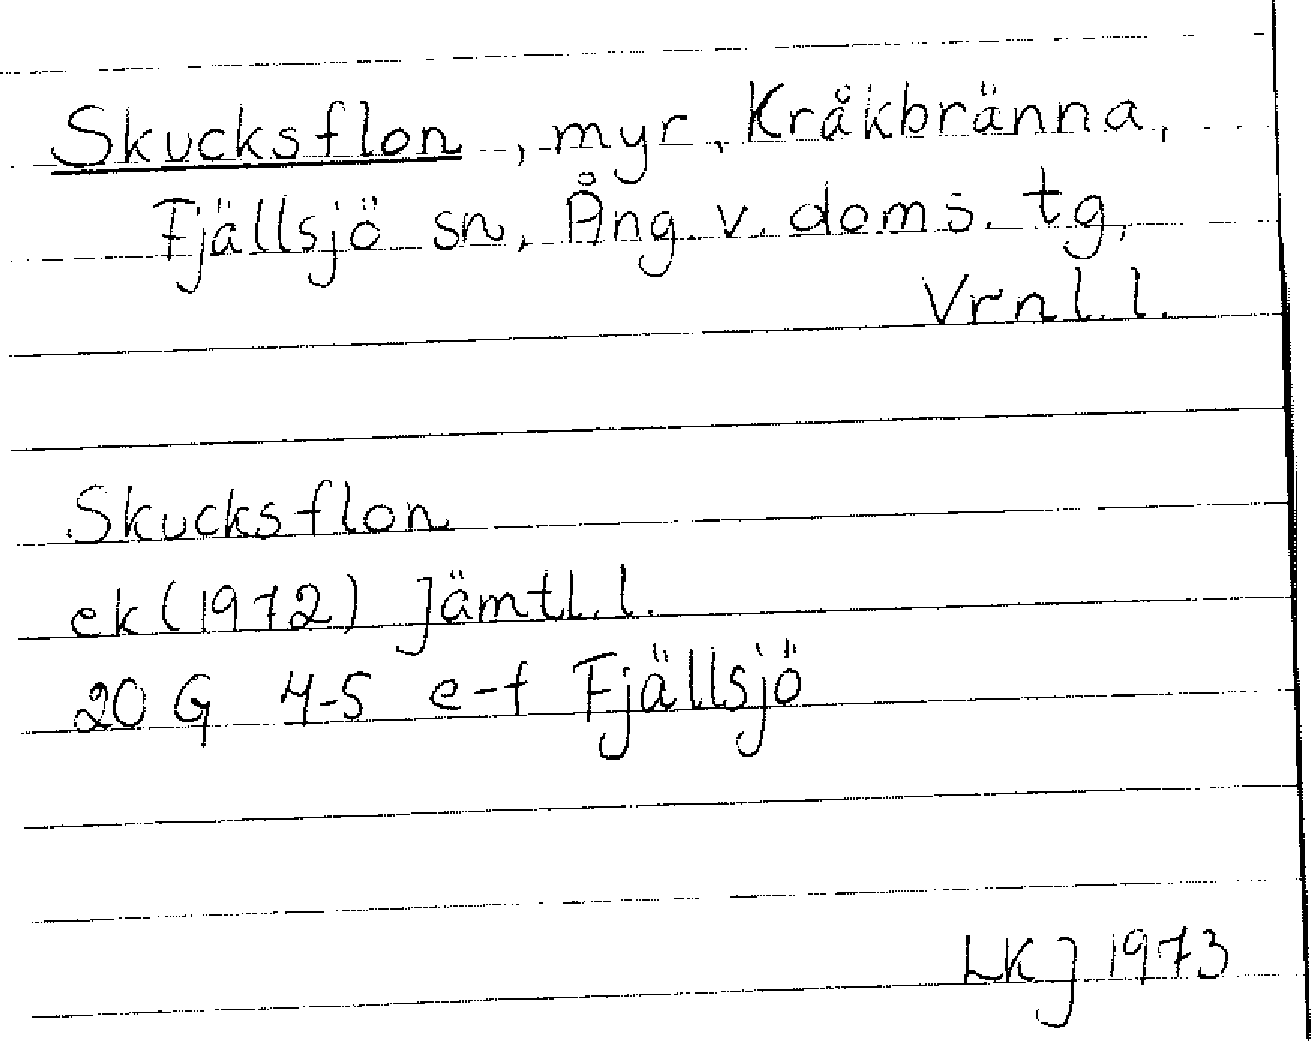 Skucksflon, myr, Kråkbränna,
Fjällsjö sn, Ång. v. doms. tg,
Vrnl. l.
Skucksflon
ek (1972) Jämtl. l.
20 G 4-5 e-f Fjällsjö
LKJ 1973